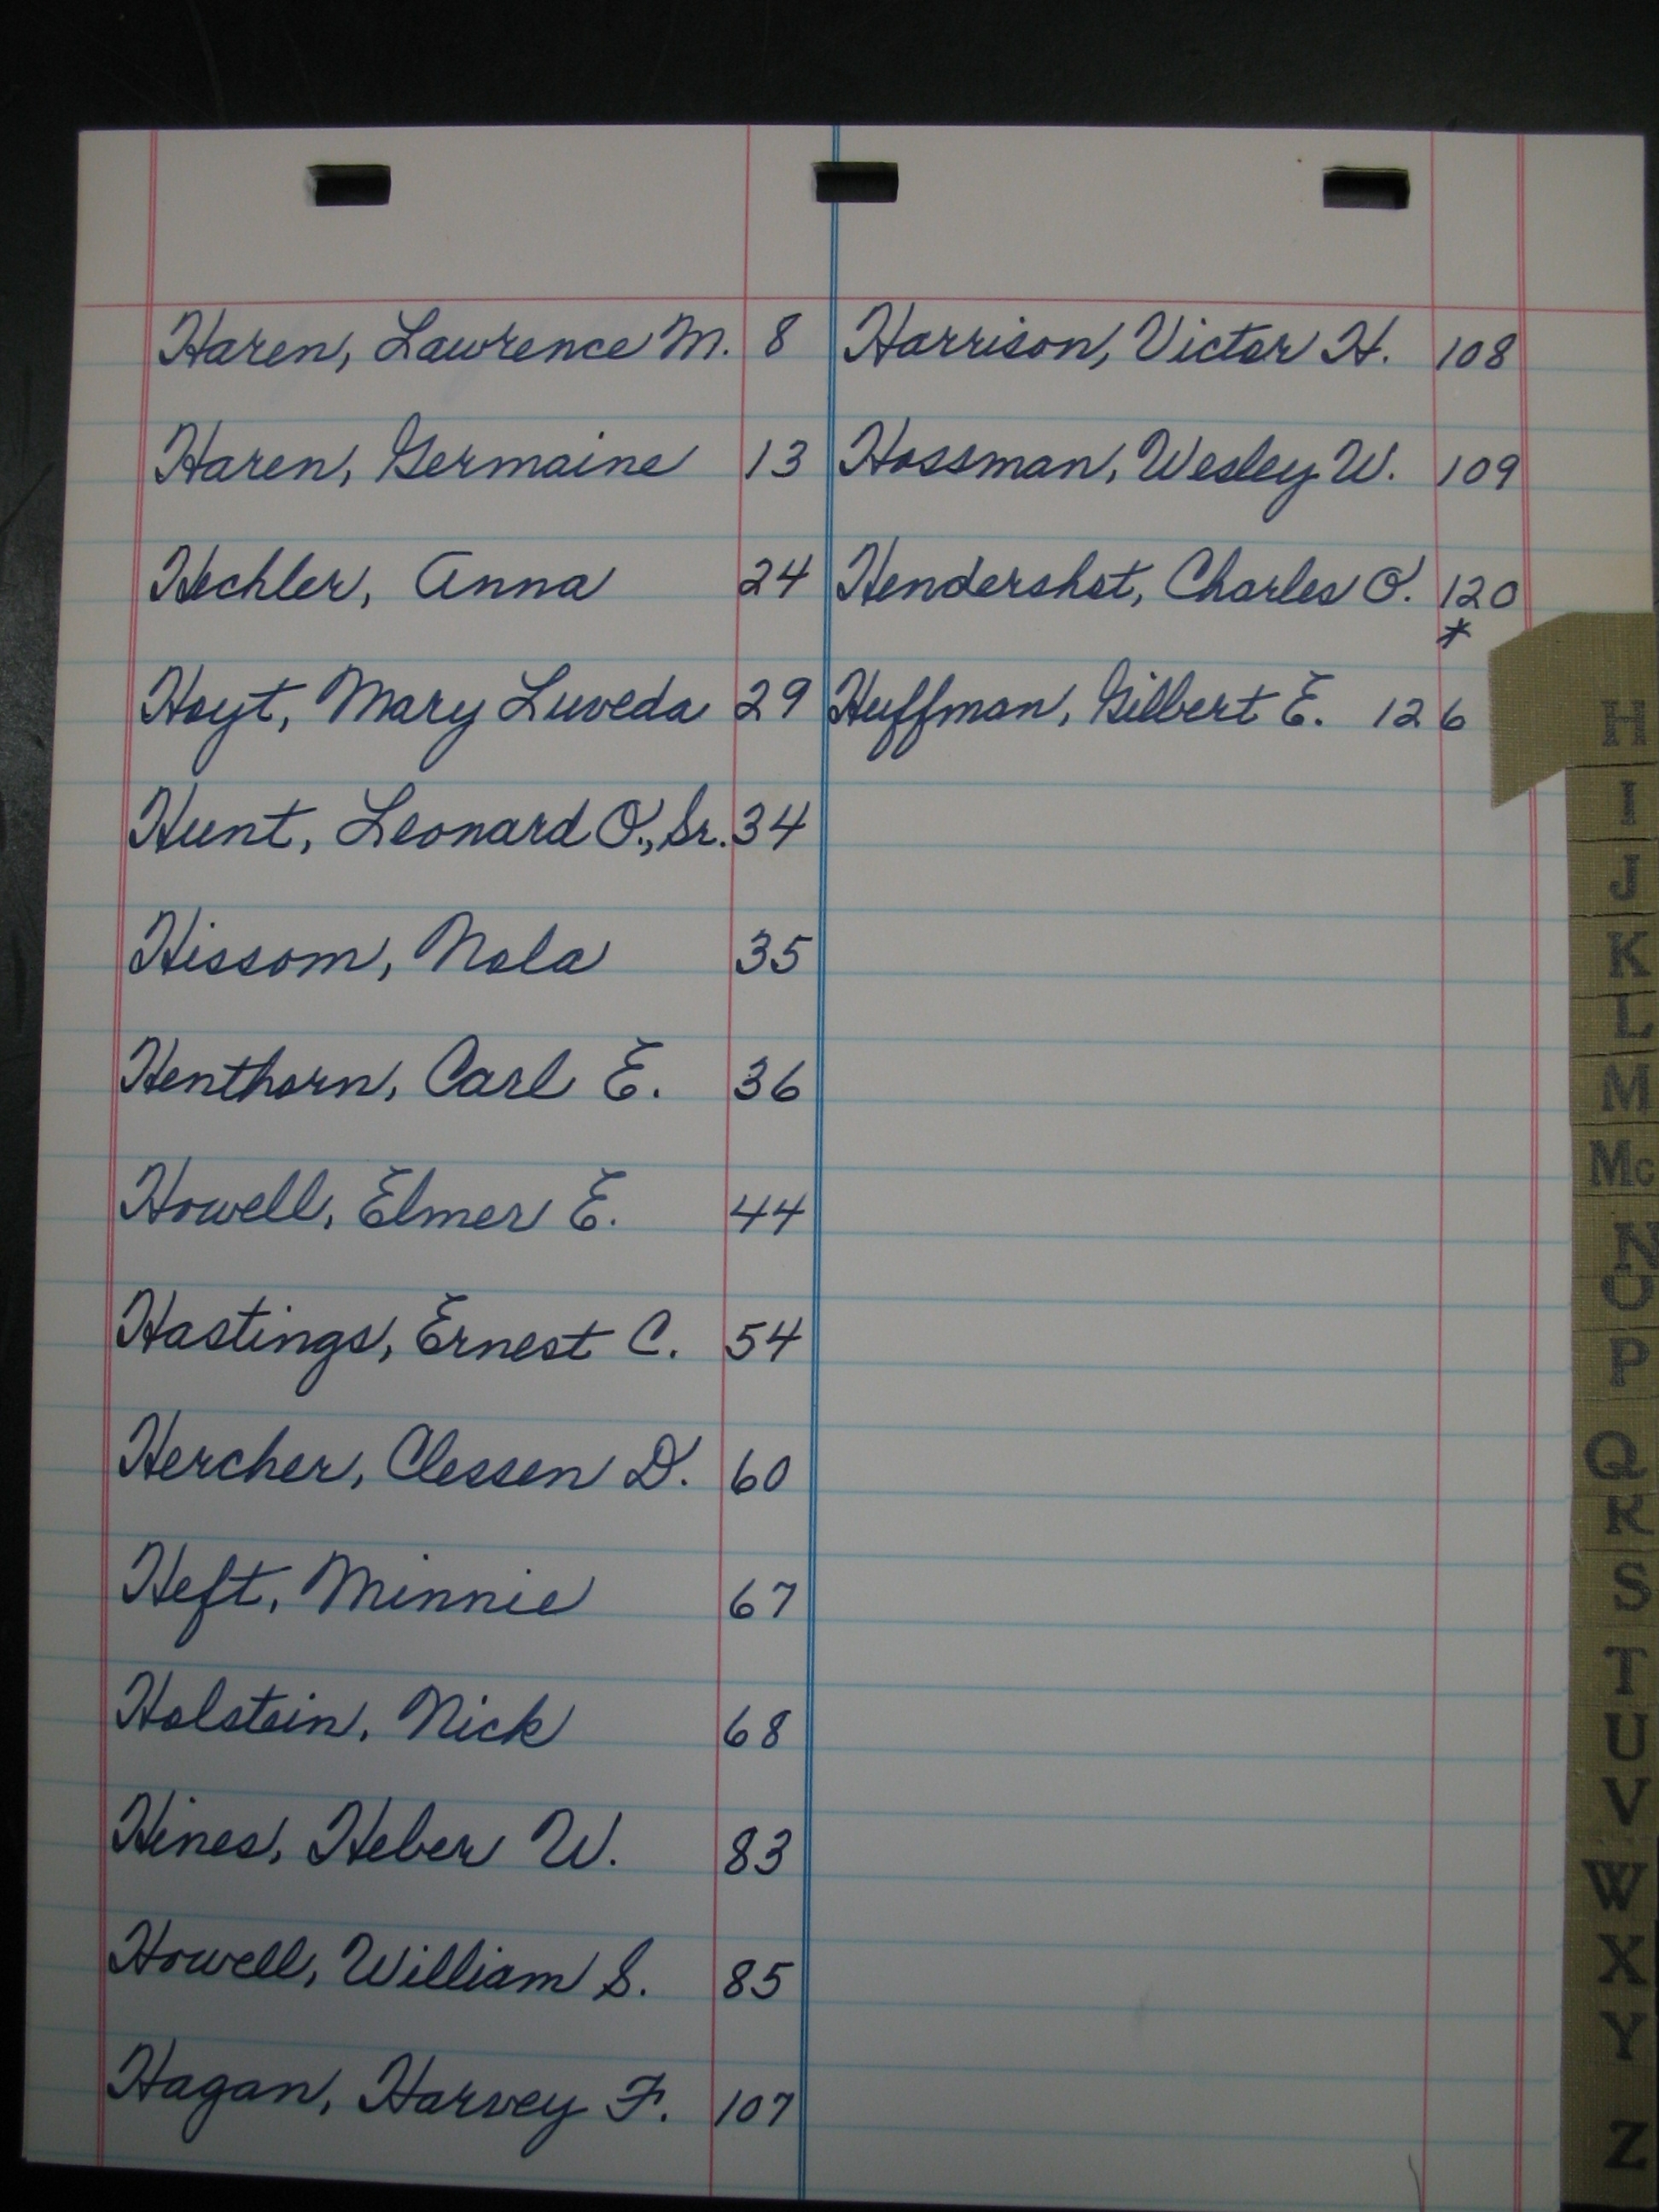 Haren, Lawrence M. 8
Haren, Germaine 13
Hechler, Anna 24
Hoyt, Mary Luveda 29
Hunt, Leonard O., Sr. 34
Hissom, Nola 35
Henthorn, Carl E. 36
Howell, Elmer E. 44
Hastings, Ernest C. 54
Hercher, Clessen D. 60
Heft, Minnie 67
Holstein, Nick 68
Hines, Heber W. 83
Howell, William S. 85
Hagan, Harvey F. 107
Harrison, Victor H. 108
Hossman, Wesley W. 109
Hendershot, Charles O. 120
*
Huffman, Gilbert E. 126
H
I
J
K
L
M
Mc
N
O
P
Q
R
S
T
U
V
W
X
Y
Z